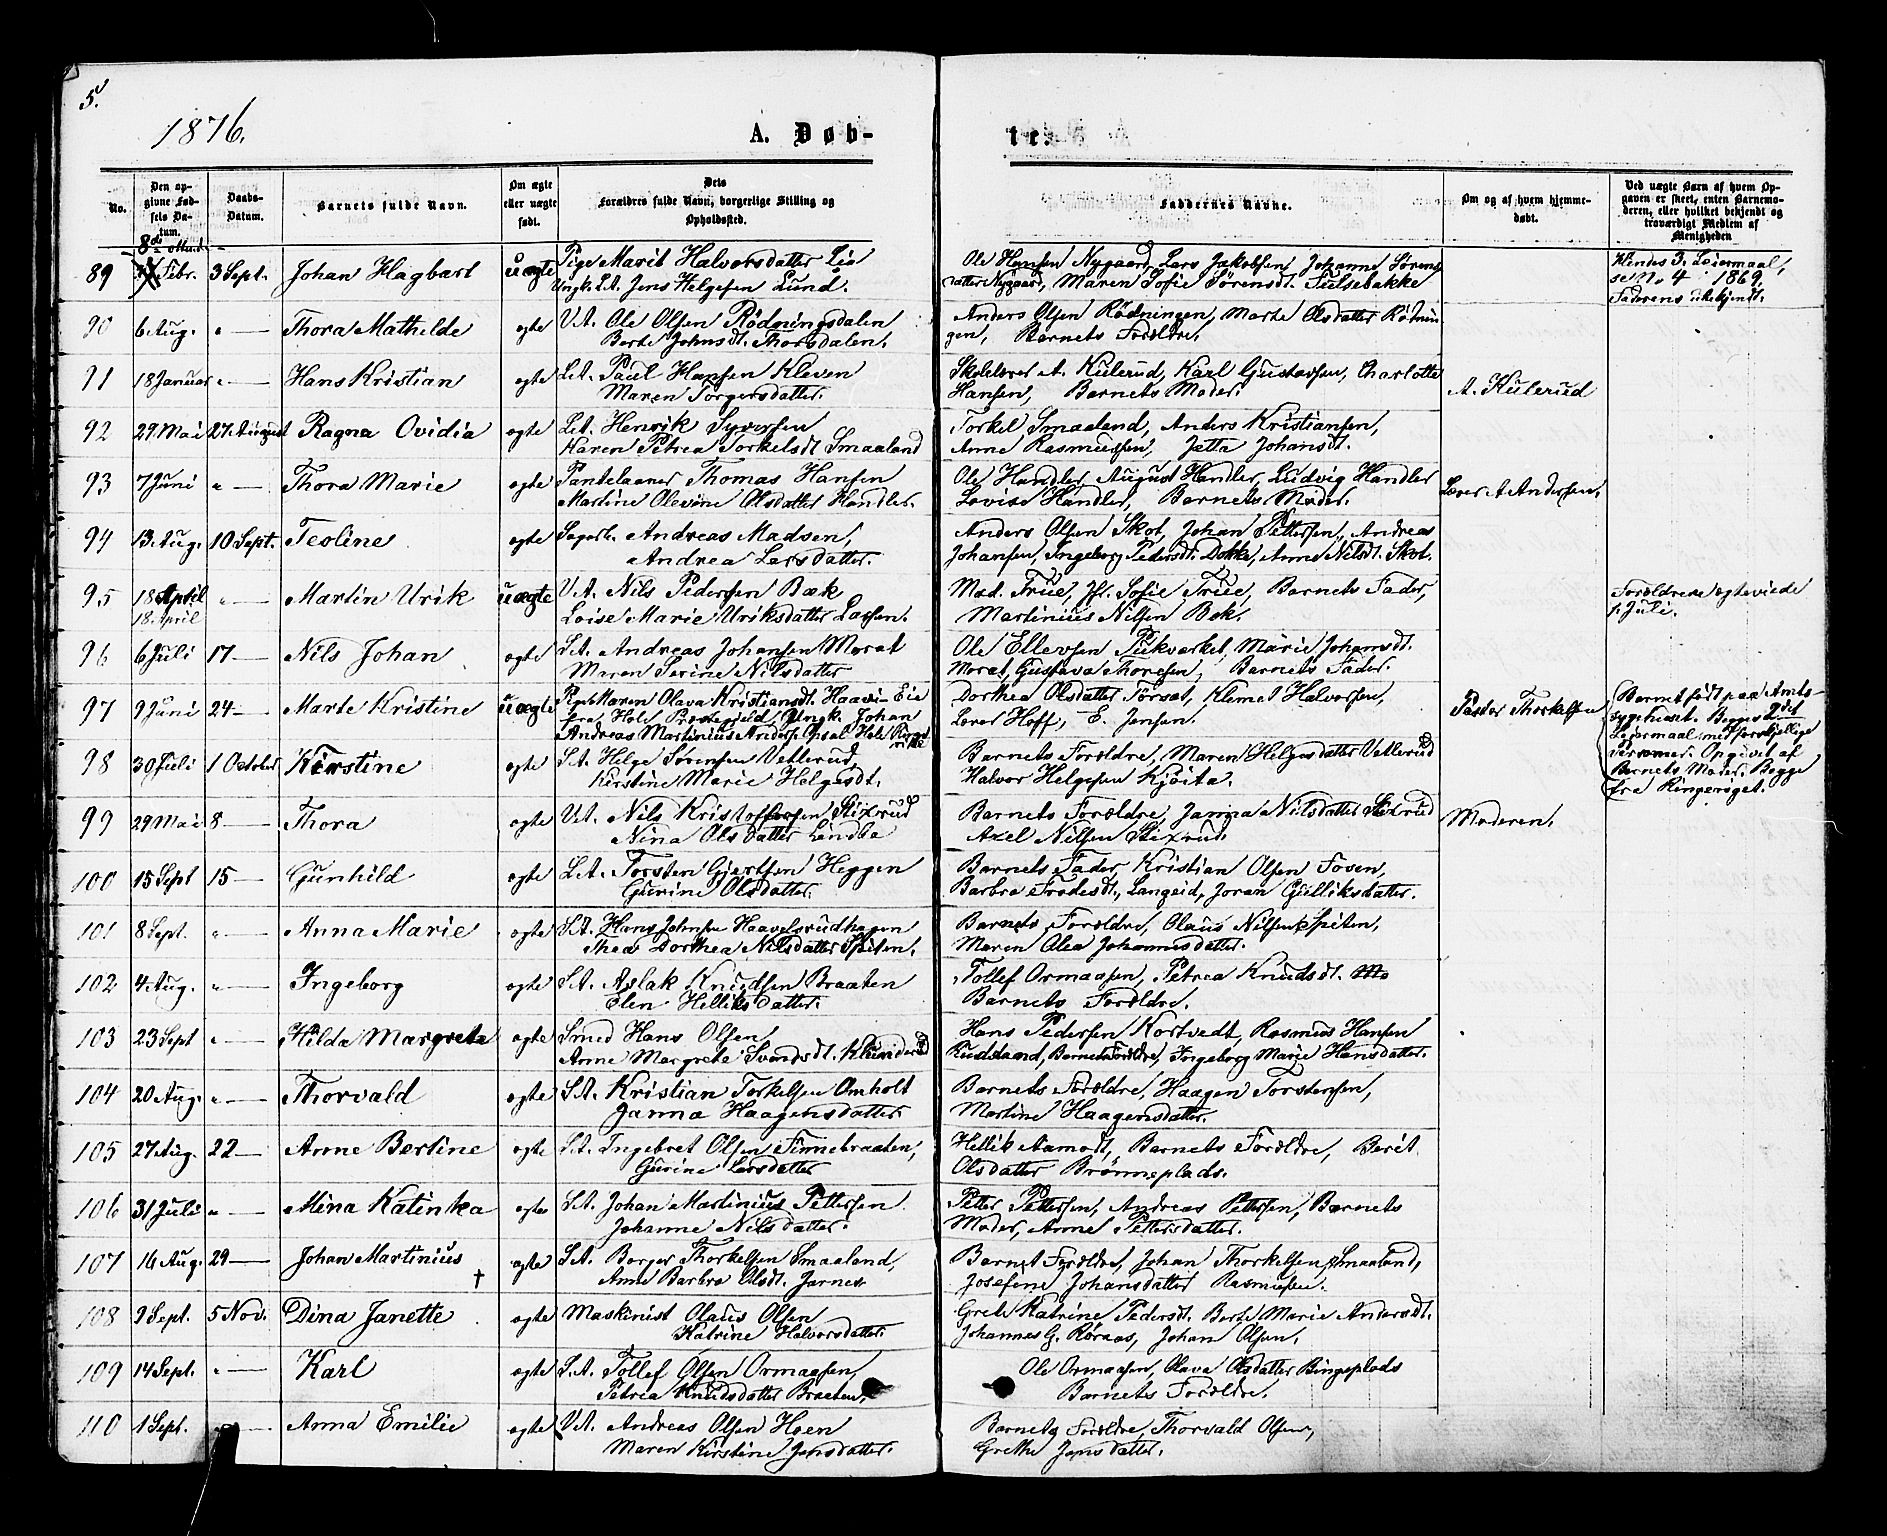 5.
1876.
A. Døb-
te.
No.
Den opgivne Fødsels Datum.
Daabs-Datum.
Barnets fulde Navn.
Om ægte eller uægte født.
Dets Forældres fulde Navn, borgerlige Stilling og Opholdsted.
Faddernes Navne.
Om og af hvem hjemmedøbt.
Ved uægte Barn af hvem Opgaven er skeet, enten Barnemoderen, eller hvilket bekjendt og troværdigt Medlem af Menigheden
89 Febr. 3 Sept. Johan Hagbart uægte Pige Marit Halvorsdatter Lia
Ungk. L.A. Jens Helgesen Lund.
Ole Hansen Nygaard, Lars Jakobsen, Johanne Sörens
datter Nygaard, Maren Sofie Sørensdt. Tielsebakke
Hendes 3. Leiermaal,
se No. 4 i 1869.
Faderens ubekjendt.
90 6 Aug. " Thora Mathilde ægte V.A. Ole Olsen Rödningsdalen
Berte Johnsdt. Thorsdalen.
Anders Olsen Rödningen, Marte Olsdatter Rödnin
gen, Barnets Forældre.
91 18 Januar " Hans Kristian ægte L.A. Paul Hansen Kleven
Maren Torgersdatter.
Skolelærer A. Kulerud, Karl Gustavsen, Charlotte
Hansen, Barnets Moder.
A. Kulerud
92 29 Mai 27. August Ragna Ovidia ægte L.A. Henrik Syversen
Karen Petrea Torkelsdt Smaaland
Torkel Smaaland, Anders Kristiansen,
Anne Rasmussen, Jetta Johansdt.
93 7 Juni " Thora Marie ægte Pantelaaner Thomas Hansen
Martine Olevine Olsdatter Handler.
Ole Handler, August Handler, Ludvig Handler
Lovise Handler, Barnets Moder.
Lærer A Andersen.
94 13. Aug. 10 Sept. Teoline ægte Sagarb. Andreas Madsen,
Andrea Larsdatter.
Anders Olsen Skot, Johan Pettersen, Andreas
Johansen, Ingeborg Pedersdt. Dokka, Anne Nilsdt. Skot.
95 18 April " Martin Urik uægte V.A. Nils Pedersen Bæk
18. April Loise Marie Uriksdatter Larsen.
Mad. True, Jfr. Sofie True, Barnets Fader,
Martinius Nilsen Bek.
Forældrene ægteviede
i Juli.
96 6 Juli 17 Nils Johan ægte S.A. Andreas Johansen Morat
Maren Serine Nilsdatter
Ole Ellevsen Pukverket, Marie Johansdt.
Morat, Gustava Thoresen, Barnets Fader.
97 9 Juni 24 Marte Kristine uægte Pige Maren Olava Kristiansdt. Haavi-Eie
fra Hole Prestegjeld, Ungk. Johan
Andreas Martinius Anders. Opsal Hole Ringe
rike
Dorthea Olsdatter Torsæt, Klemet Halvorsen,
Lærer Hoff, E. Jensen.
Pastor Thorkelsen
Barnet född paa Amts-
sygehuset. Begges 2det
Leiermaal med forskjellige
Personer. Opgivet af
Barnets Moder. Begge
fra Ringeriget.
98 30 Juli 1 October Kirstine ægte S.A. Helge Sørensen Vetterud
Kirstine Marie Helgesdt.
Barnets Forældre, Maren Helgesdatter Vetterud
Halvor Helgesen Kjöita.
99 29 Mai 8 Thora ægte V.A. Nils Kristoffersen Stixrud
Nina Olsdatter Lindba
Barnets Forældre, Janna Nilsdatter Stixrud
Axel Nilsen Stixrud.
Moderen.
100 15 Sept 15 Gunhild ægte L.A. Torsten Gjertsen Heggen
Gurine Olsdatter.
Barnets Fader, Kristian Olsen Fosen,
Barbra Frodesdt., Langeid, Joran Gulliksdatter.
101 8 Sept. " Anna Marie ægte S.A. Hans Johnsen Haavelsrudhagen
Thea Dorthea Nilsdatter Spiten.
Barnets Forældre, Olaus Nilsen Spiten,
Maren Olea Johannesdatter.
102 4 Aug. " Ingeborg ægte S.A. Aslak Knudsen Braaten
Elen Helliksdatter.
Tollef Ormaasen, Petrea Knudsdt. Mo
Barnets Forældre.
103 23 Sept " Hilda Margrete ægte Smed Hans Olsen
Anne Margrete Svendsdt. Klunderud
Hans Pedersen Kortvedt, Rasmus Hansen
Rudstaad, Barnets Forældre, Ingeborg Marie Hansdatter.
104 20 Aug. " Thorvald ægte S.A. Kristian Torkelsen Omholt
Janna Haagensdatter
Barnets Forældre, Haagen Torstensen,
Martine Haagensdatter.
105 27 Aug. 22 Anne Bertine ægte S.A. Ingebret Olsen Finnebraaten,
Gurine Larsdatter
Hellik Aamodt, Barnets Forældre, Berit
Olsdatter Brønneplads.
106 31 Juli " Mina Katinka ægte S.A. Johan Martinius Pettersen
Johanne Nilsdatter.
Petter Pettersen, Andreas Pettersen, Barnets
Moder, Anne Pettersdatter.
107 16 Aug. 29 Johan Martinius † ægte S.A. Borger Thorkelsen Smaaland,
Anne Barbra Olsdt. Jarnes
Barnet Forældre, Johan Thorkelsen Smaaland,
Josefine Johansdatter Rasmusen.
108 9 Sept. 5 Nov. Dina Janette ægte Maskinist Olaus Olsen
Katrine Halvorsdatter.
Grete Katrine Pedersdt. Berte Marie Andersdt.
Johannes G. Røraas, Johan Olsen.
109 14 Sept. " Karl ægte S.A. Tollef Olsen Ormaasen,
Petrea Knudsdatter Braaten.
Ole Ormaasen, Olava Olsdatter Bingeplads
Barnets Forældre.
110 1 Sept. Anna Emilie ægte V.A. Andreas Olsen Hoen
Maren Kirstine Jensdatter.
Barnets Forældre, Thorvald Olsen,
Grethe Jensdatter.